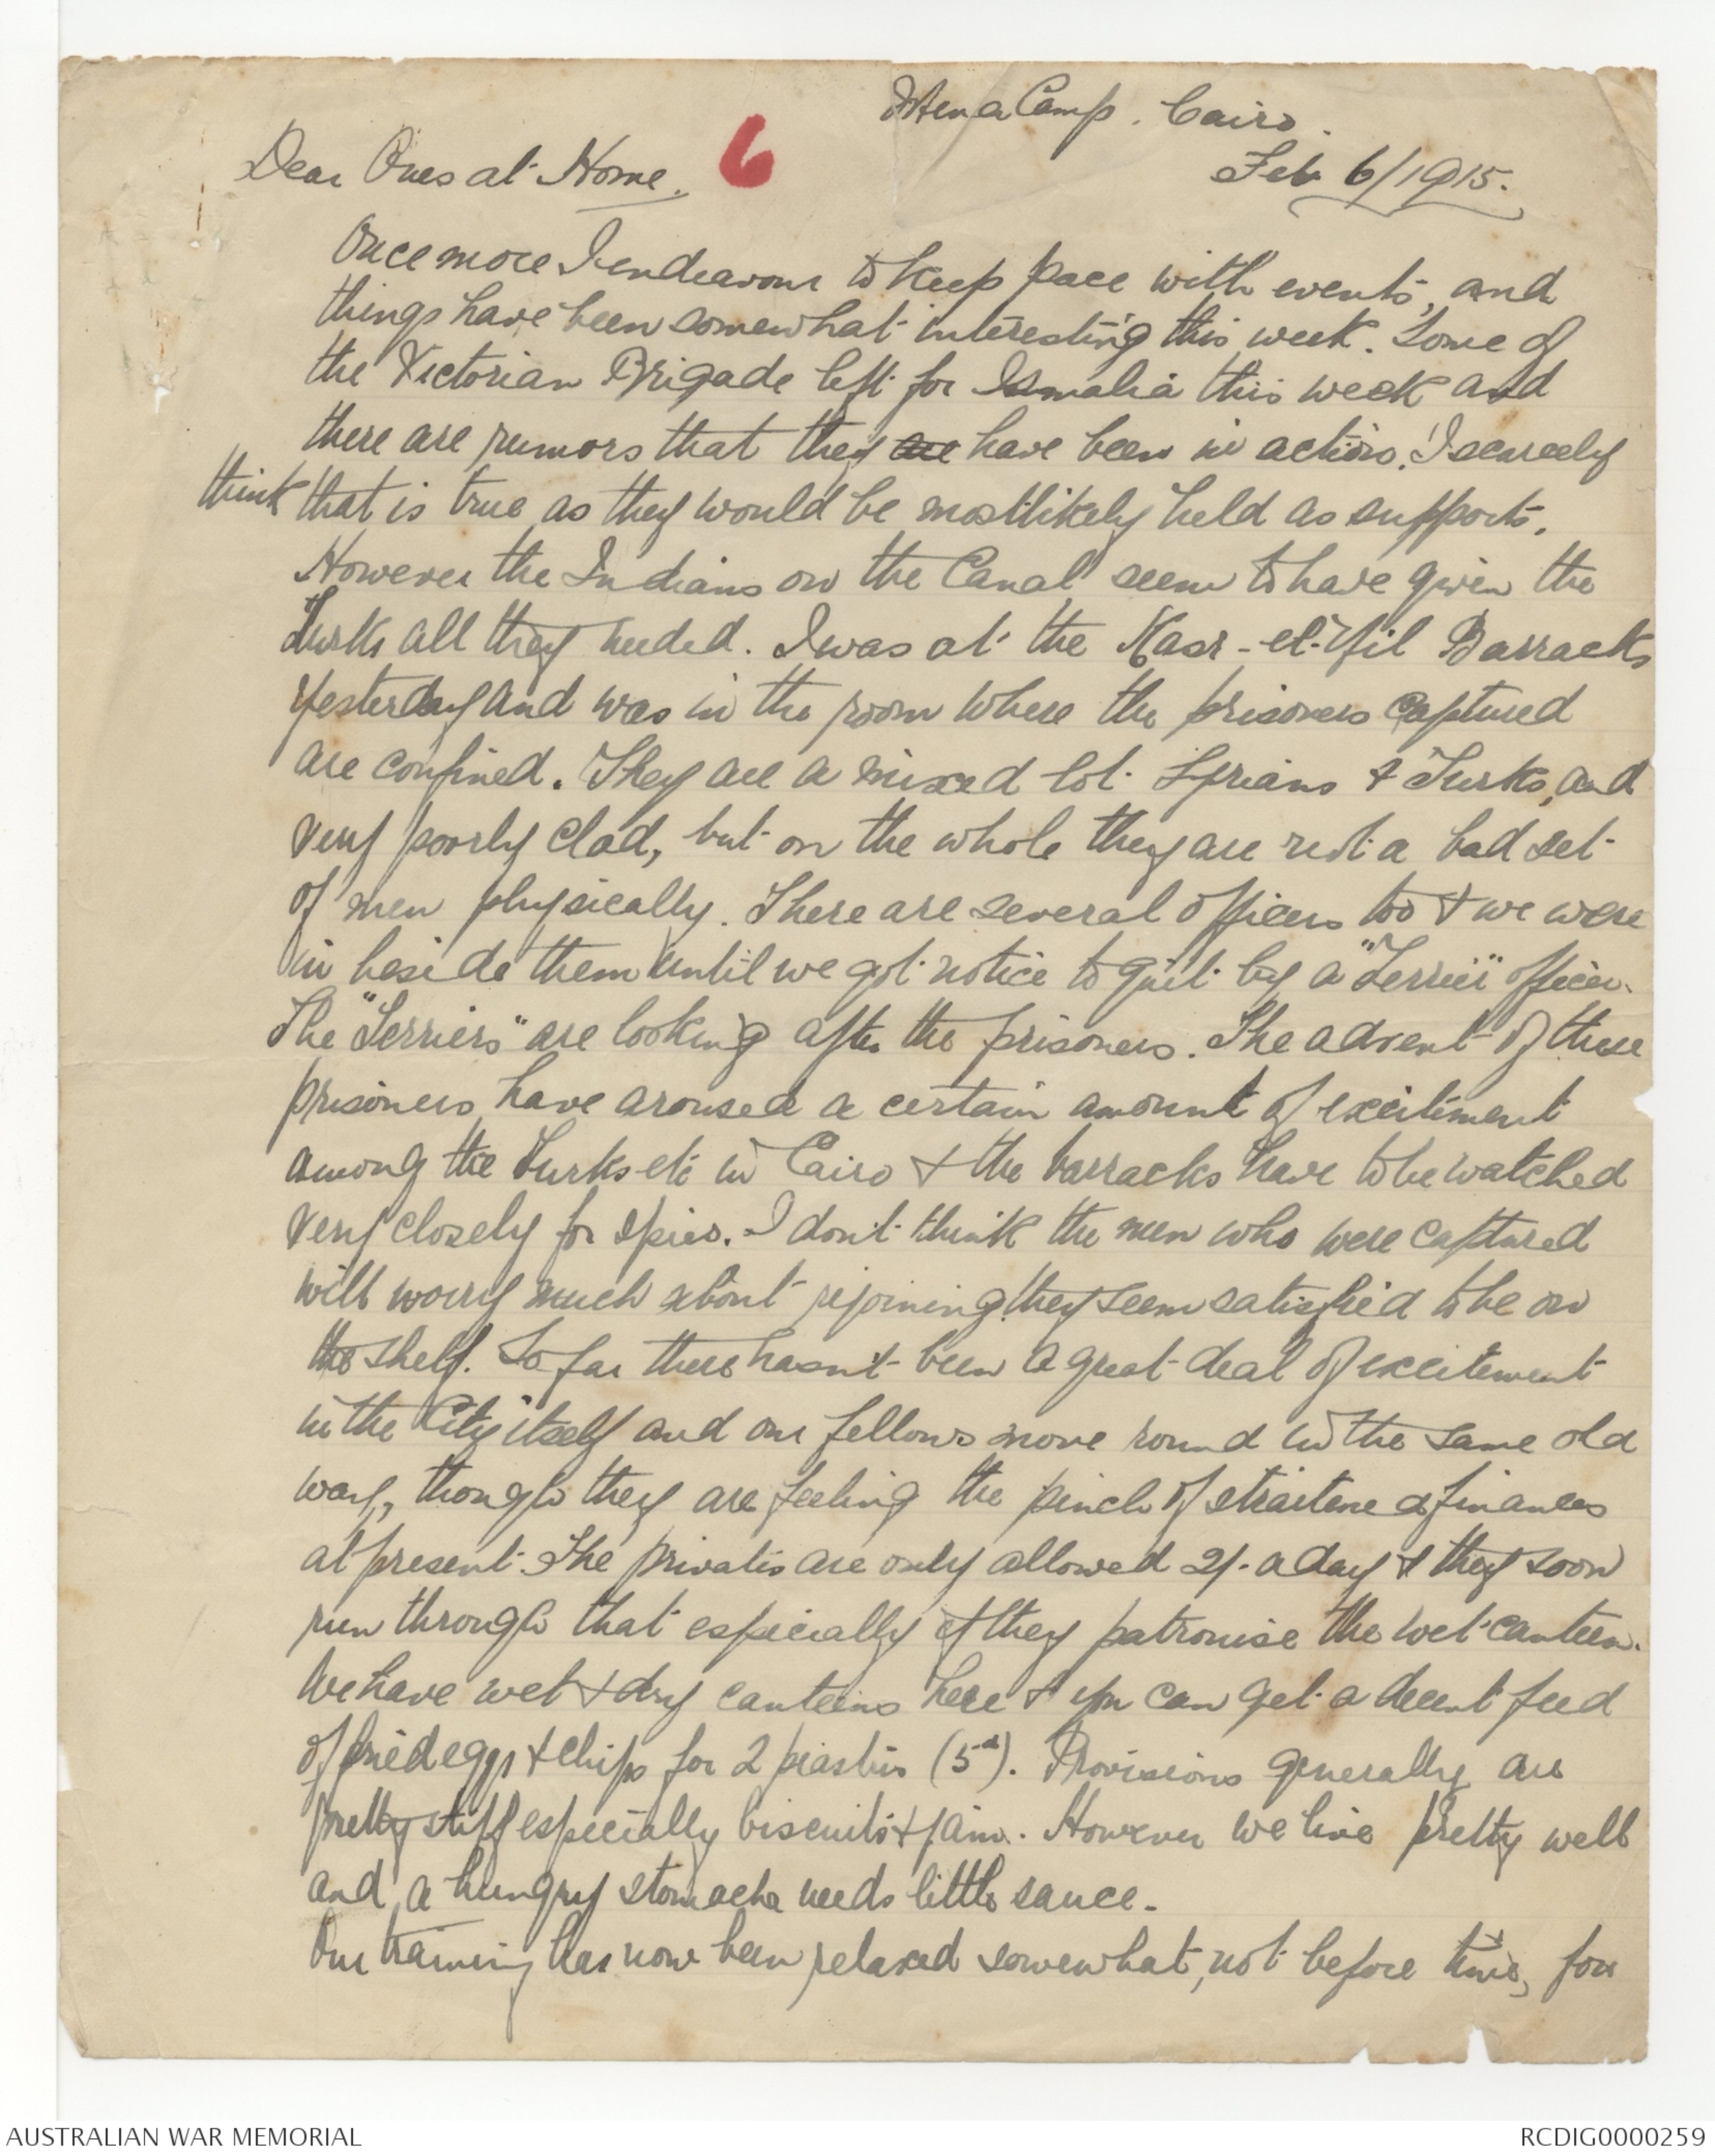 Mena Camp. Cairo.
Dear Ones at Home. 6
Feb 6/1915.
Once more I endeavour to keep pace with events, and
things have been somewhat interesting this week. Some of
the Victorian Brigade left for Ismalia this week and
there are rumors that they are have been in action. I scarcely
think that is true as they would be most likely held as supports.
However the Indians on the Canal seem to have given the
Turks all they needed. I was at the Kasr-el-Nil Barracks
yesterday and was in the room where the prisoners captured
are confined. They are a mixed lot Syrians & Turks, and
very poorly clad, but on the whole they are not a bad set
of men physically. There are several officers too & we were
in beside them until we got notice to quit by a "Terrier" officer.
The "Terriers" are looking after the prisoners. The advent of these
prisoners have aroused a certain amount of excitement
among the Turks etc in Cairo & the barracks have to be watched
very closely for spies. I don't think the men who were captured
will worry much about rejoining, they seem satisfied to be on
the shelf. So far there hasn't been a great deal of excitement
in the City itself and our fellows move round in the same old
way, though they are feeling the pinch of straitened finances
at present. The privates are only allowed 2/- a day & they soon
run through that especially if they patronise the wet canteen.
We have wet & dry canteens here & you can get a decent feed
of fried eggs & chips for 2 piastres (5d). Provisions generally are
pretty stiff especially biscuits & jam. However we live pretty well
and a hungry stomache needs little sauce.
Our training has now been relaxed somewhat, not before time, for
AUSTRALIAN WAR MEMORIAL
RCDIG0000259